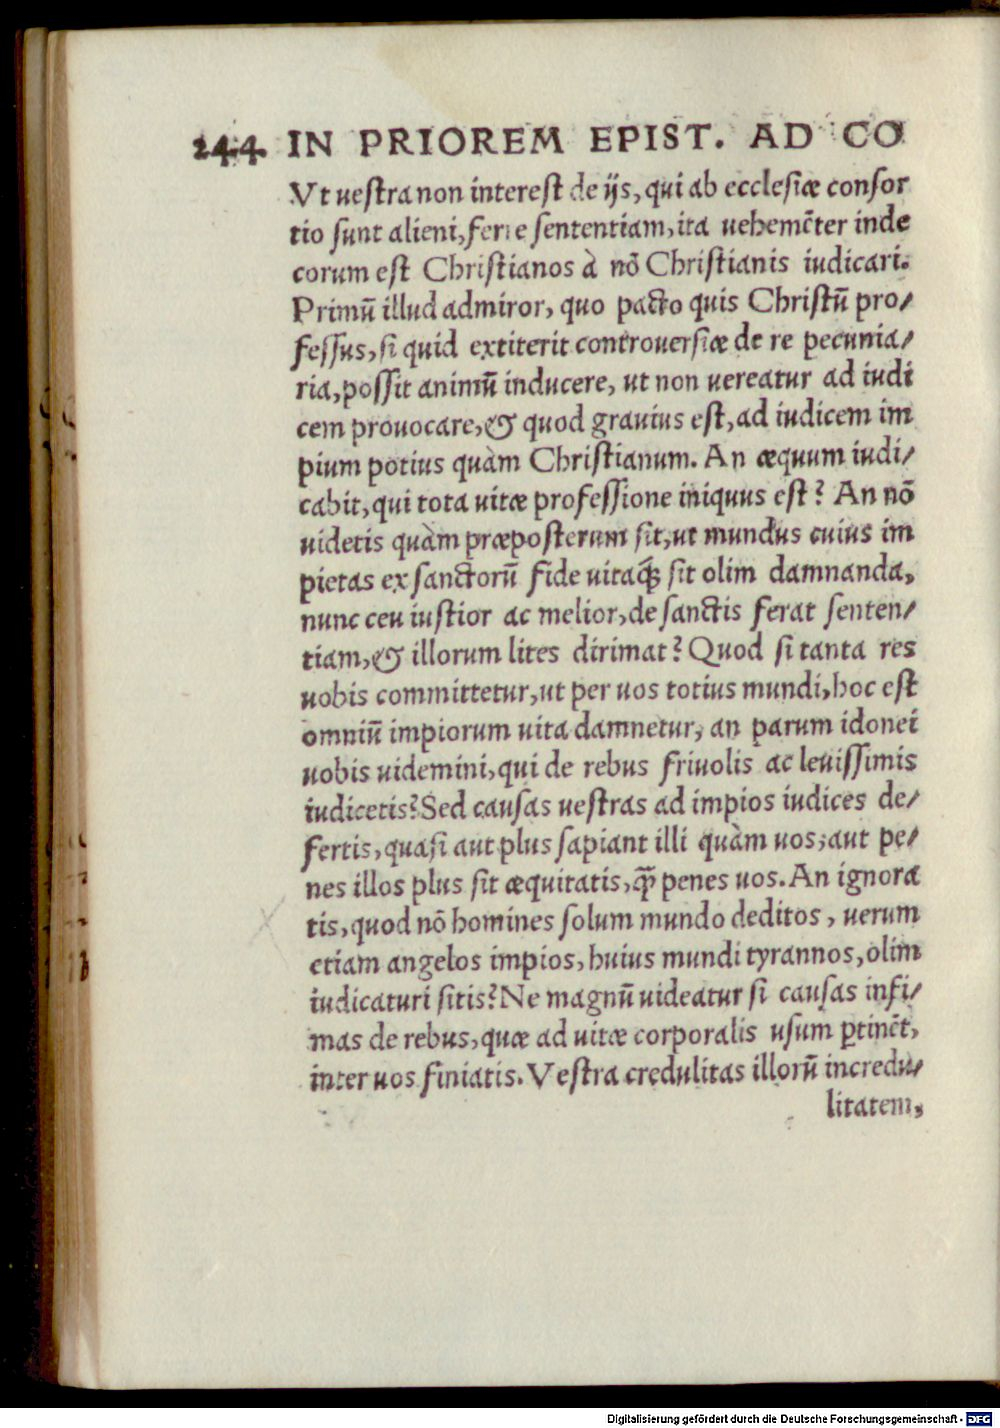 244 IN PRIOREM EPIST. AD CO
Vt uestra non interest de ijs, qui ab ecclesiæ consor
tio sunt alieni, ferre sententiam, ita uehemẽter inde
corum est Christianos à nõ Christianis iudicari.
Primũ illud admiror, quo pacto quis Christũ pro/
fessus, si quid extiterit controuersiæ de re pecunia/
ria, possit animũ inducere, ut non uereatur ad iudi
cem prouocare, & quod grauius est, ad iudicem im
pium potius quàm Christianum. An æquum iudi/
cabit, qui tota uitæ professione iniquus est? An nõ
uidetis quàm præposterum sit, ut mundus cuius im
pietas ex sanctorũ fide uitaq́; sit olim damnanda,
nunc ceu iustior ac melior, de sanctis ferat senten/
tiam, & illorum lites dirimat? Quod si tanta res
uobis committetur, ut per uos totius mundi, hoc est
omniũ impiorum uita damnetur, an parum idonei
uobis uidemini, qui de rebus friuolis ac leuissimis
iudicetis? Sed causas uestras ad impios iudices de/
fertis, quasi aut plus sapiant illi quàm uos, aut pe/
nes illos plus sit æquitatis, q̃ penes uos. An ignora
tis, quod nõ homines solum mundo deditos, uerum
etiam angelos impios, huius mundi tyrannos, olim
iudicaturi sitis? Ne magnũ uideatur si causas infi/
mas de rebus, quæ ad uitæ corporalis usum ꝑtinẽt,
inter uos finiatis. Vestra credulitas illorũ incredu/
litatem,
Digitalisierung gefördert durch die Deutsche Forschungsgemeinschaft - DFG